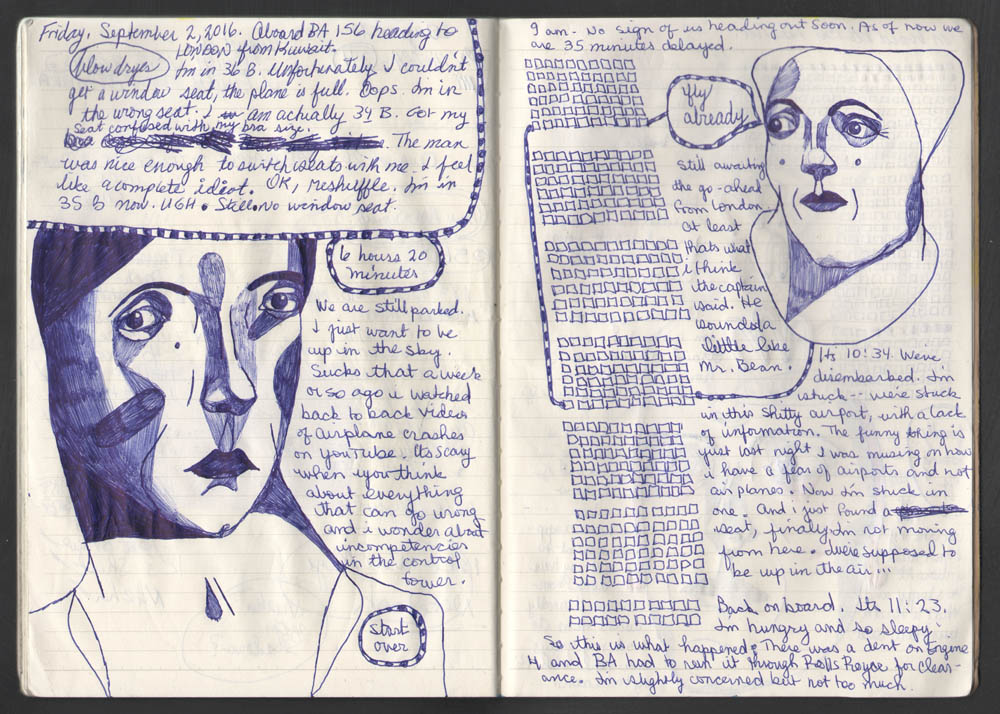 Friday, September 2, 2016. Aboard BA 156 heading to
LONDON from Kuwait.
blow dryer
I'm in 36 B. Unfortunately I couldn't
get a window seat, the plane is full. Oops. I'm in
the wrong seat. I am actually 34 B. Got my
seat confused with my bra size.
The man
was nice enough to switch seats with me. I feel
like a complete idiot. OK, reshuffle. I'm in
35 B now. UGH. Still no window seat.
6 hours 20
minutes
We are still parked.
I just want to be
up in the sky.
Sucks that a week
or so ago i watched
back to back videos
of airplane crashes
on youTube. Its scary
when you think
about everything
that can go wrong
and i wonder about
incompetencies
in the control
tower.
start
over
9 am. No sign of us heading out soon. As of now we
are 35 minutes delayed.
fly
already
Still awaiting
the go-ahead
from London.
At least
thats what
i think
the captain
said. He
sounds a
little like
Mr. Bean.
It's 10:34. We've
disembarked. I'm
stuck -- we're stuck
in this shitty airport, with a lack
of information. The funny thing is
just last night I was musing on how
i have a fear of airports and not
airplanes. Now I'm stuck in
one. And i just found a
seat, finally. I'm not moving
from here. We're supposed to
be up in the air...
Back on board. Its 11:23.
I'm hungry and so sleepy.
So this is what happened: There was a dent on Engine
4 and BA had to run it through Rolls Royce for clear-
ance. I'm slightly concerned but not too much.